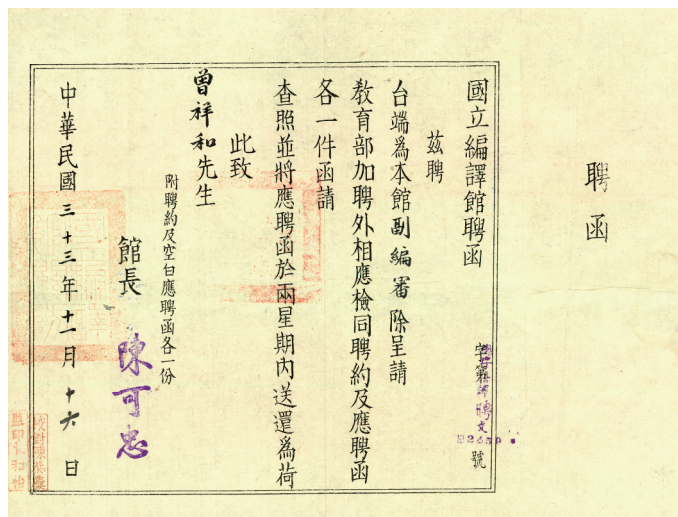 聘函
國立編譯館聘函
字第 號
聘文
茲聘
台端爲本館副編審除呈請
教育部加聘外相應檢同聘約及應聘函
各一件函請
查照並將應聘函於兩星期內送還爲荷
此致
曾祥和先生
附聘約及空白應聘函各一份
館長 陳可忠
中華民國三十三年十一月十六日